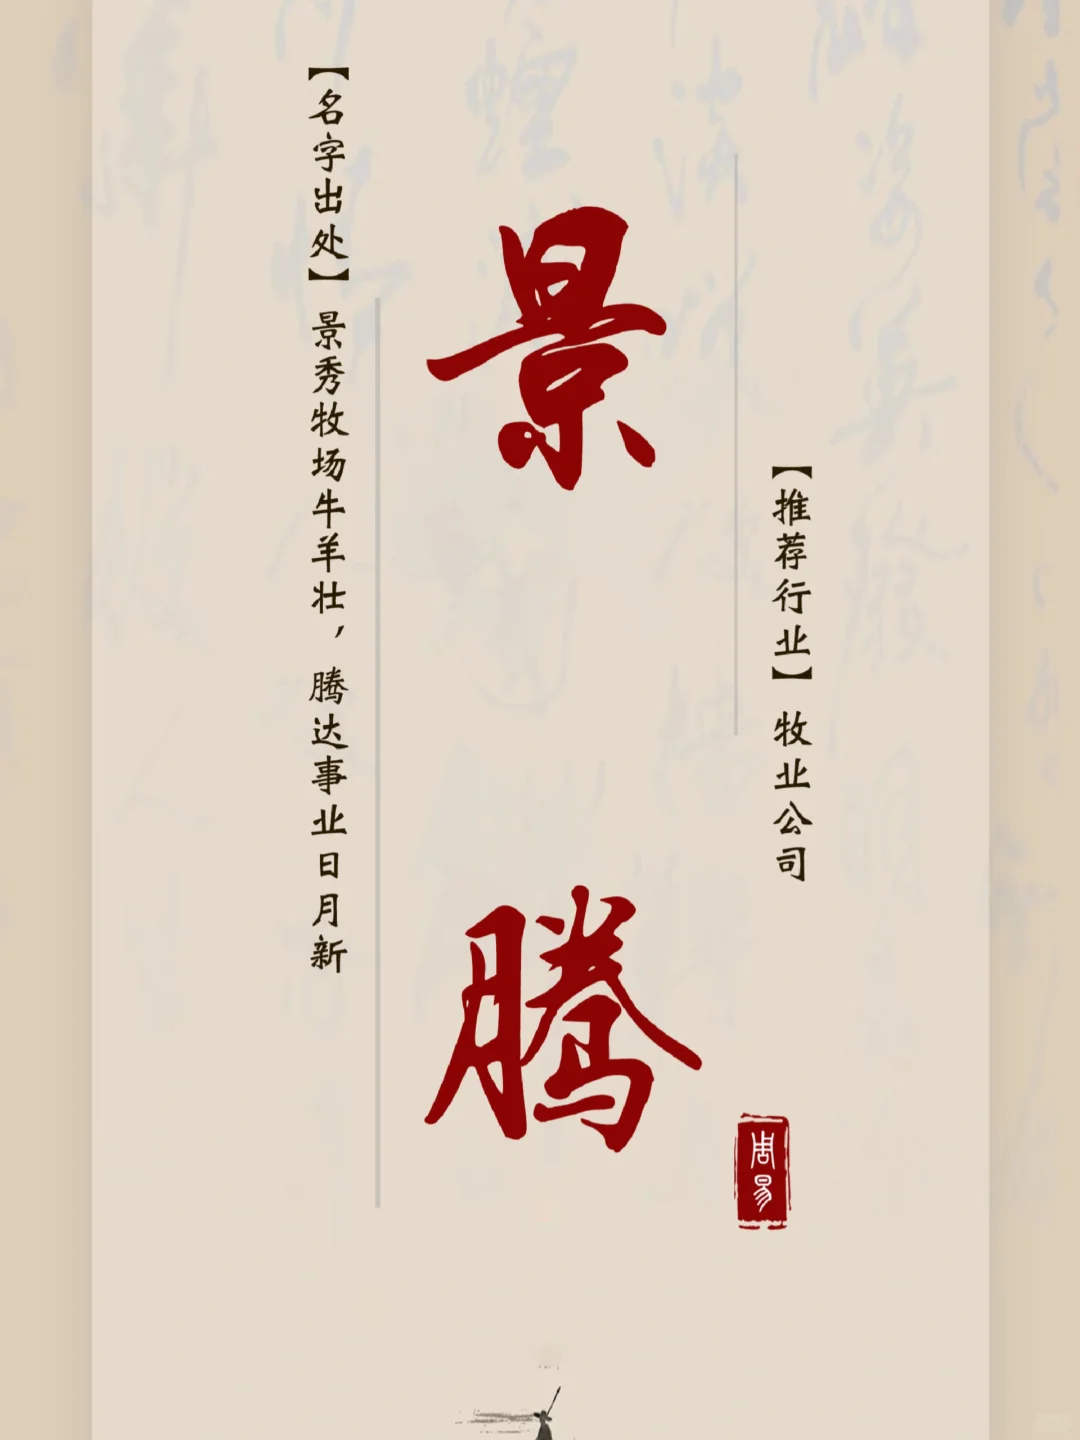 【推荐行业】牧业公司
景腾
【名字出处】景秀牧场牛羊壮，腾达事业日月新
周易